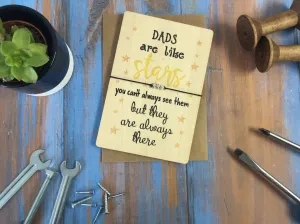 DADS
are like
stars
you can't always see them
but they
are always
there